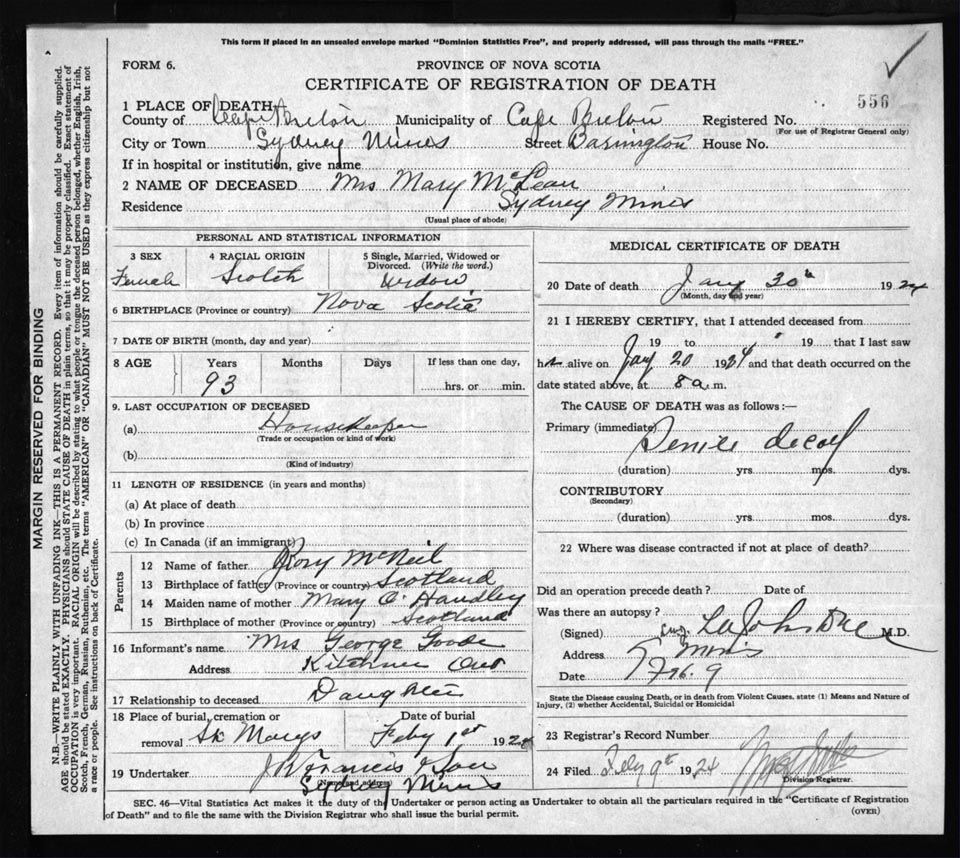 This form if placed in an unsealed envelope marked "Dominion Statistics Free", and properly addressed, will pass through the mails "FREE."
FORM 6.
PROVINCE OF NOVA SCOTIA
CERTIFICATE OF REGISTRATION OF DEATH
556
1 PLACE OF DEATH
County of Cape Breton Municipality of Cape Breton Registered No.
(For use of Registrar General only)
City or Town Sydney Mines Street Barrington House No.
If in hospital or institution, give name
2 NAME OF DECEASED Mrs Mary McLean
Residence Sydney Mines
(Usual place of abode)
PERSONAL AND STATISTICAL INFORMATION
3 SEX
Female
4 RACIAL ORIGIN
Scotch
5 Single, Married, Widowed or Divorced. (Write the word.)
Widow
6 BIRTHPLACE (Province or country) Nova Scotia
7 DATE OF BIRTH (month, day and year)
8 AGE Years Months Days If less than one day,
93 hrs. or min.
9. LAST OCCUPATION OF DECEASED
(a) Housekeeper
(Trade or occupation or kind of work)
(b)
(Kind of industry)
11 LENGTH OF RESIDENCE (in years and months)
(a) At place of death
(b) In province
(c) In Canada (if an immigrant)
Parents
12 Name of father Rory McNeil
13 Birthplace of father (Province or country) Scotland
14 Maiden name of mother Mary O. Handley
15 Birthplace of mother (Province or country) Scotland
16 Informant's name Mrs George Goode
Address Kitchner Ont
17 Relationship to deceased Daughter
18 Place of burial, cremation or Date of burial
removal St Marys Feby 1st 1924
19 Undertaker J W Francis & Son
Sydney Mines
MEDICAL CERTIFICATE OF DEATH
20 Date of death Jany 30th 1924
(Month, day and year)
21 I HEREBY CERTIFY, that I attended deceased from
19 to 19 that I last saw
her alive on Jany 20 1924 and that death occurred on the
date stated above, at 8 a. m.
The CAUSE OF DEATH was as follows :—
Primary (immediate) Senile decay
(duration) yrs. mos. dys.
CONTRIBUTORY
(Secondary)
(duration) yrs. mos. dys.
22 Where was disease contracted if not at place of death?
Did an operation precede death? Date of
Was there an autopsy?
(Signed) Johnstone M.D.
Address S Mines
Date Feb. 9
State the Disease causing Death, or in death from Violent Causes, state (1) Means and Nature of
Injury, (2) whether Accidental, Suicidal or Homicidal
23 Registrar's Record Number
24 Filed Feby 9th 1924
Division Registrar.
SEC. 46—Vital Statistics Act makes it the duty of the Undertaker or person acting as Undertaker to obtain all the particulars required in the "Certificate of Registration
of Death" and to file the same with the Division Registrar who shall issue the burial permit.
(OVER)
MARGIN RESERVED FOR BINDING
N.B.—WRITE PLAINLY WITH UNFADING INK—THIS IS A PERMANENT RECORD. Every item of information should be carefully supplied.
AGE should be stated EXACTLY. PHYSICIANS should STATE CAUSE OF DEATH in plain terms, so that it may be properly classified. Exact statement of
OCCUPATION is very important. RACIAL ORIGIN will be described by stating to what people or tongue the deceased person belonged, whether English, Irish,
Scotch, French, German, Russian, Ruthenian, etc. The terms "AMERICAN" OR "CANADIAN" MUST NOT BE USED as they express citizenship but not
a race or people. See instructions on back of Certificate.